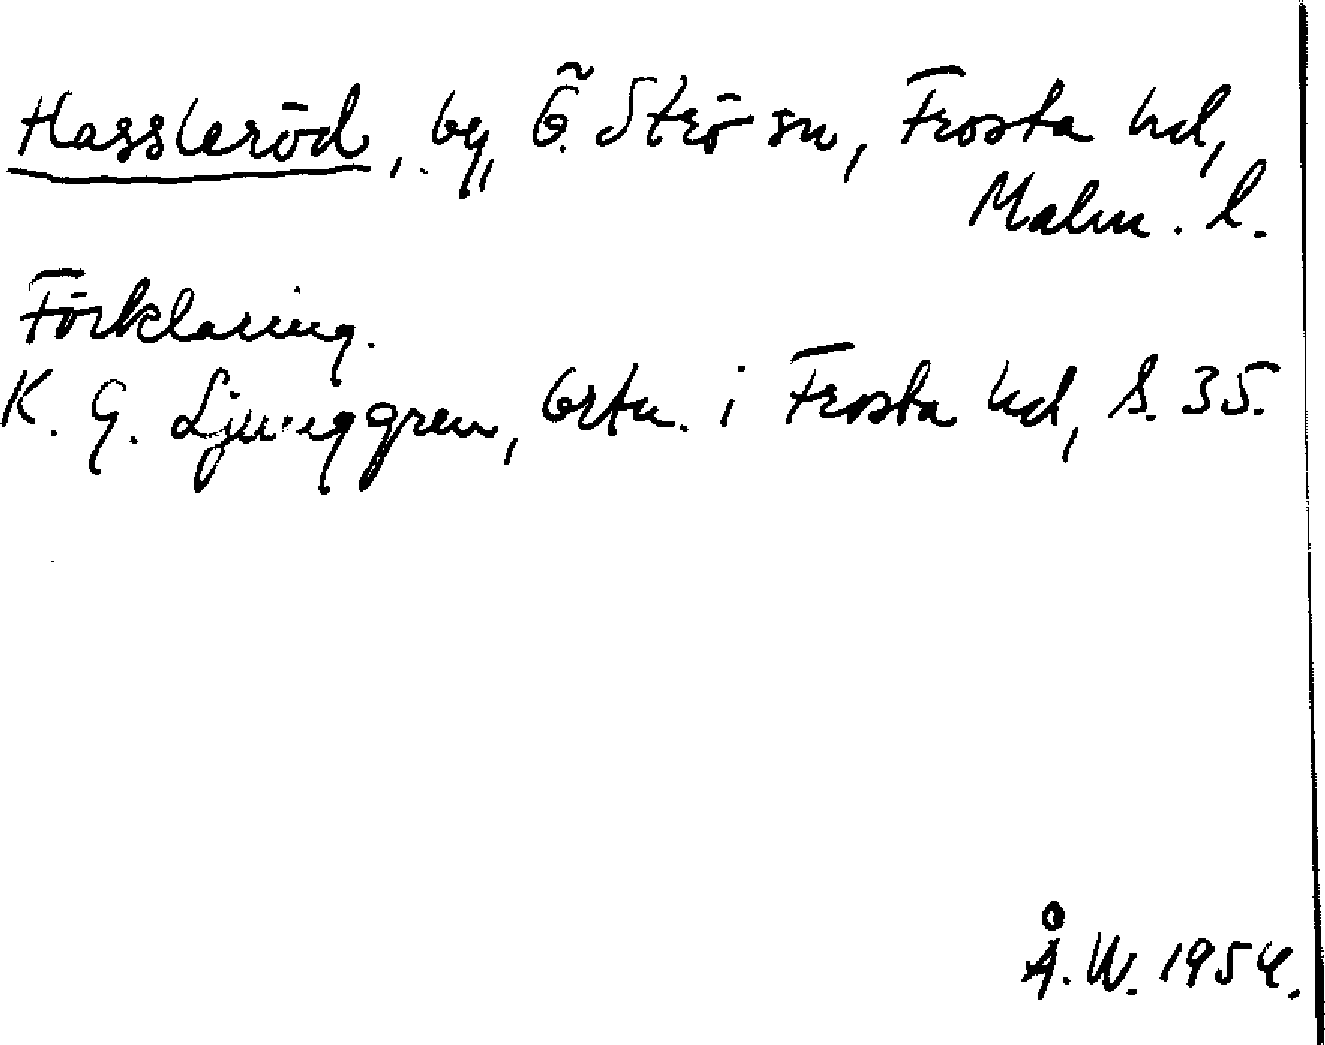 Hassleröd, by, Ö. Strö sn, Frosta hd,
Malm. l.
Förklaring.
K. G. Ljunggren, Ortn. i Frosta hd, S. 35.
Å. W. 1954.